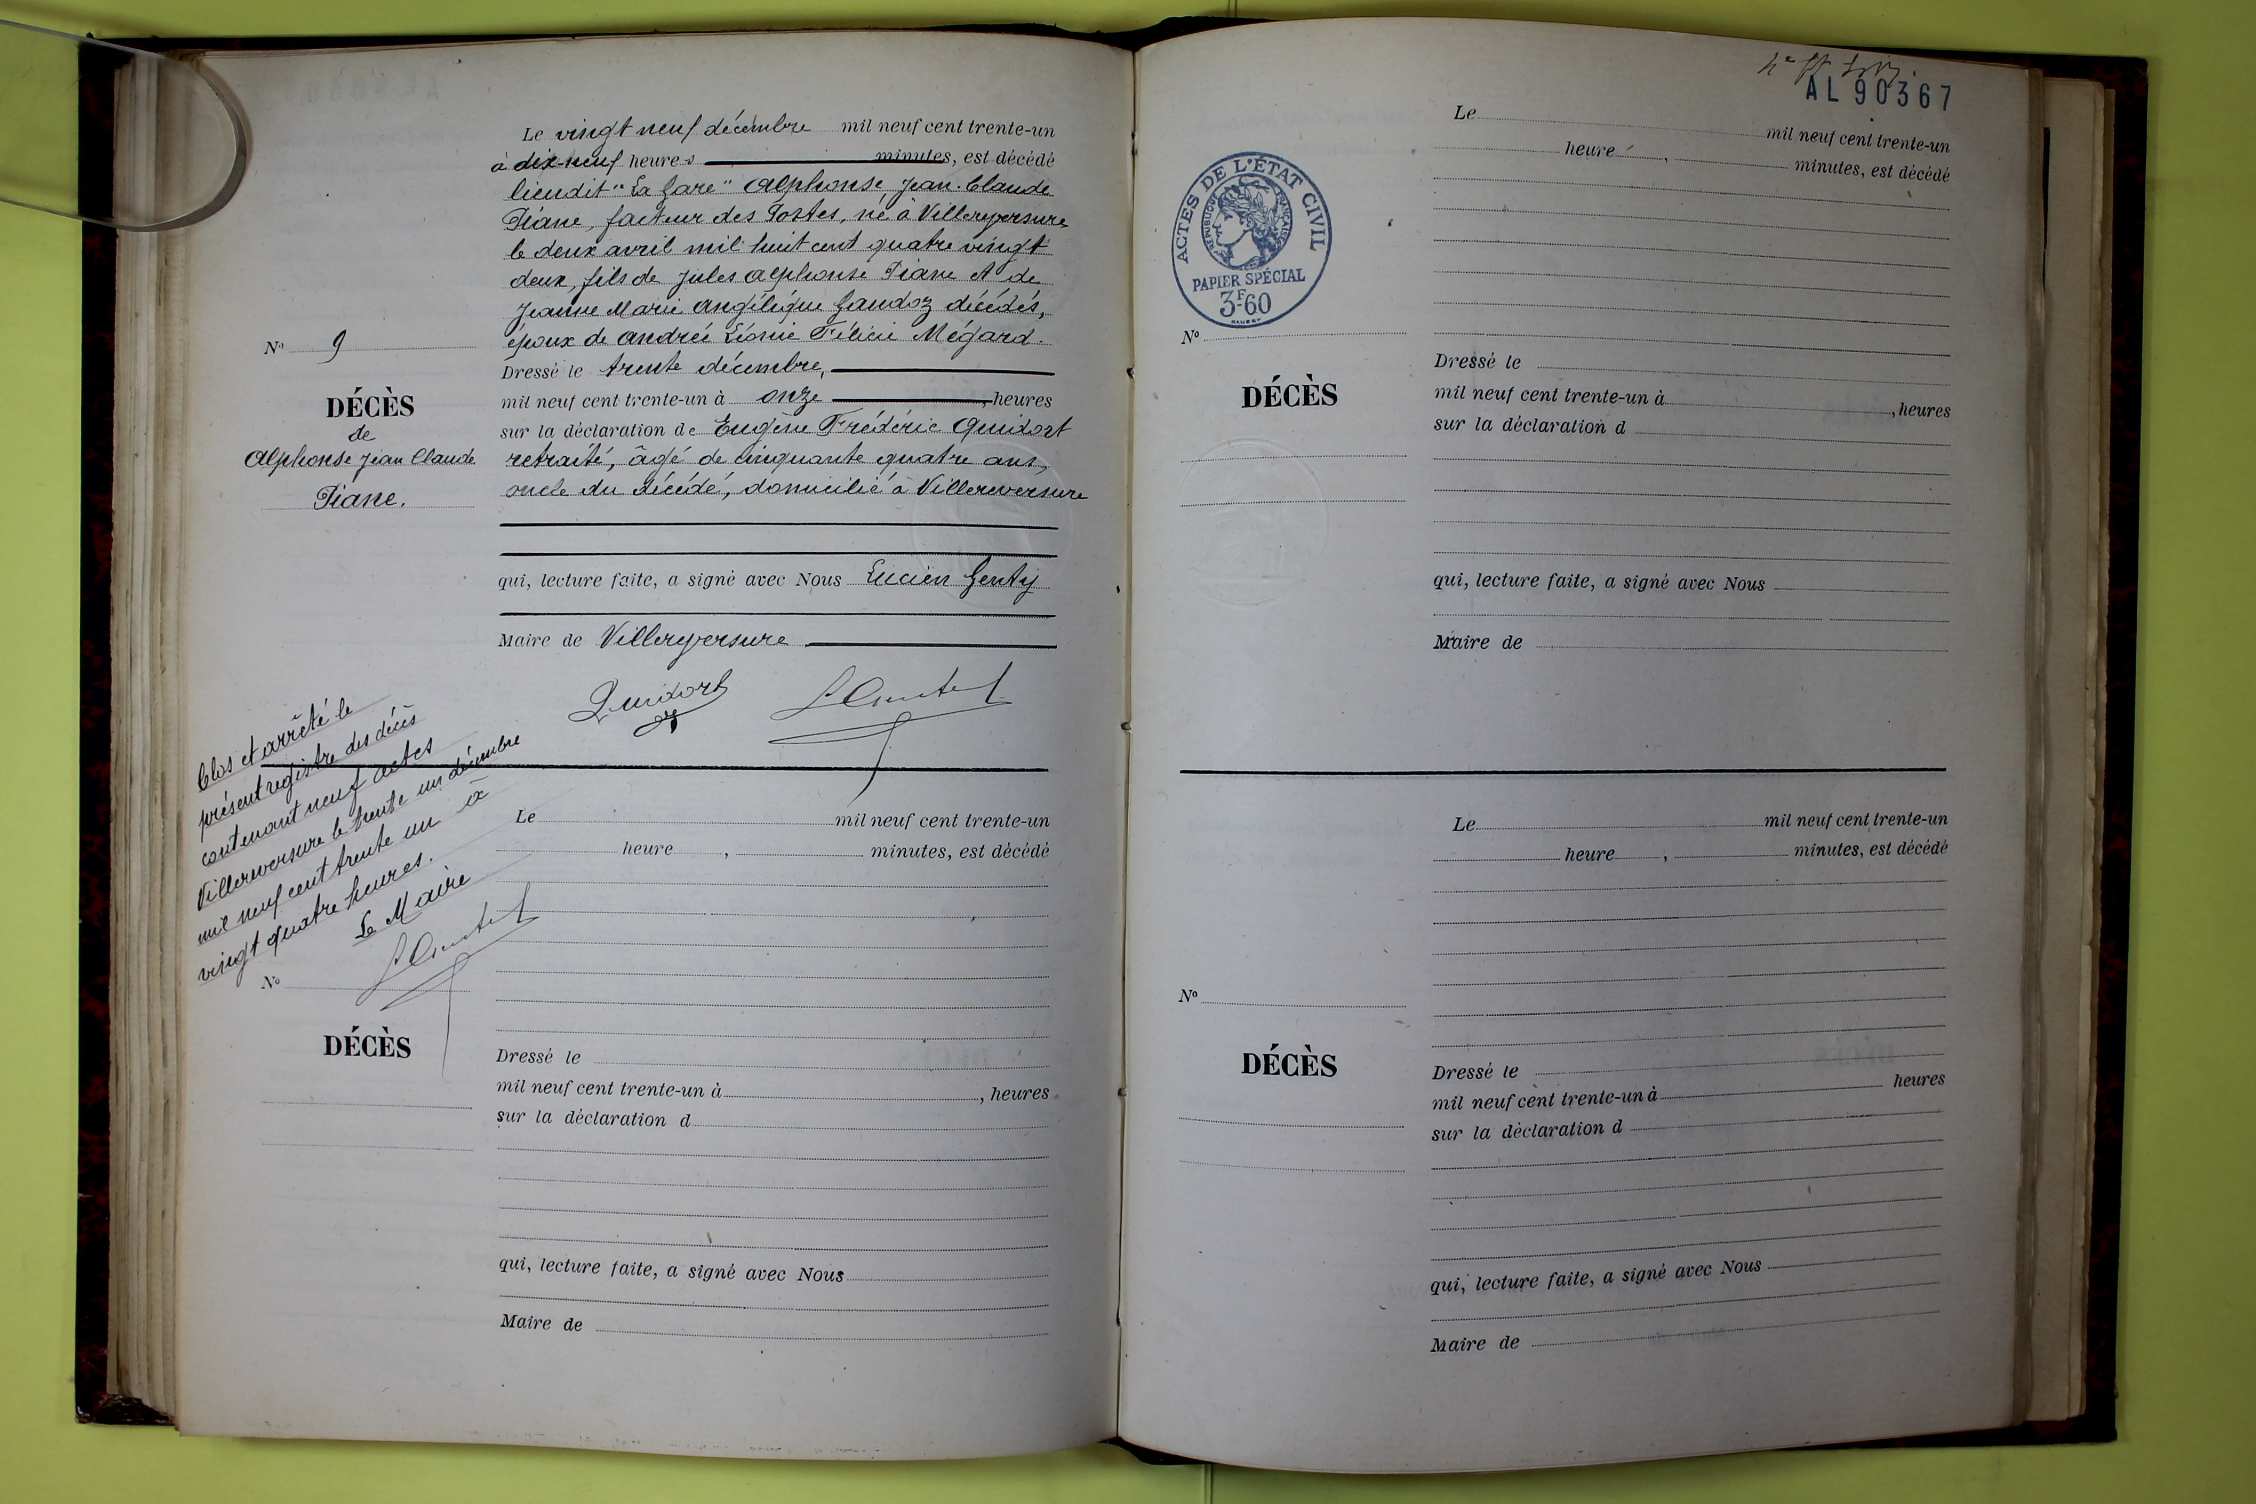 Le vingt neuf décembre mil neuf cent trente-un
à dix-neuf heures minutes, est décédé
lieudit "La Gare" Alphonse Jean-Claude
Piane, facteur des Postes, né à Villereversure
le deux avril mil huit cent quatre vingt
deux, fils de Jules Alphonse Piane et de
Jeanne Marie Angélique Gaudoz décédés,
époux de Andrée Léonie Félicie Mégard.
Dressé le trente décembre,
mil neuf cent trente-un à onze, heures
sur la déclaration de Eugène Frédéric Quidort
retraité, âgé de cinquante quatre ans,
oncle du décédé, domicilié à Villereversure
qui, lecture faite, a signé avec Nous Lucien Genty
Maire de Villereversure
Quidort
No 9
DÉCÈS
de
Alphonse Jean Claude
Piane.
Clos et arrêté le
présent registre des décès
contenant neuf actes
Villereversure le trente un décembre
mil neuf cent trente un à
vingt quatre heures.
Le Maire
Le mil neuf cent trente-un
heure , minutes, est décédé
No
DÉCÈS
Dressé le
mil neuf cent trente-un à , heures
sur la déclaration d
qui, lecture faite, a signé avec Nous
Maire de
AL 90367
ACTES DE L'ÉTAT CIVIL
RÉPUBLIQUE FRANÇAISE
PAPIER SPÉCIAL
3F.60
Le mil neuf cent trente-un
heure , minutes, est décédé
No
DÉCÈS
Dressé le
mil neuf cent trente-un à , heures
sur la déclaration d
qui, lecture faite, a signé avec Nous
Maire de
Le mil neuf cent trente-un
heure , minutes, est décédé
No
DÉCÈS
Dressé le
mil neuf cent trente-un à heures
sur la déclaration d
qui, lecture faite, a signé avec Nous
Maire de